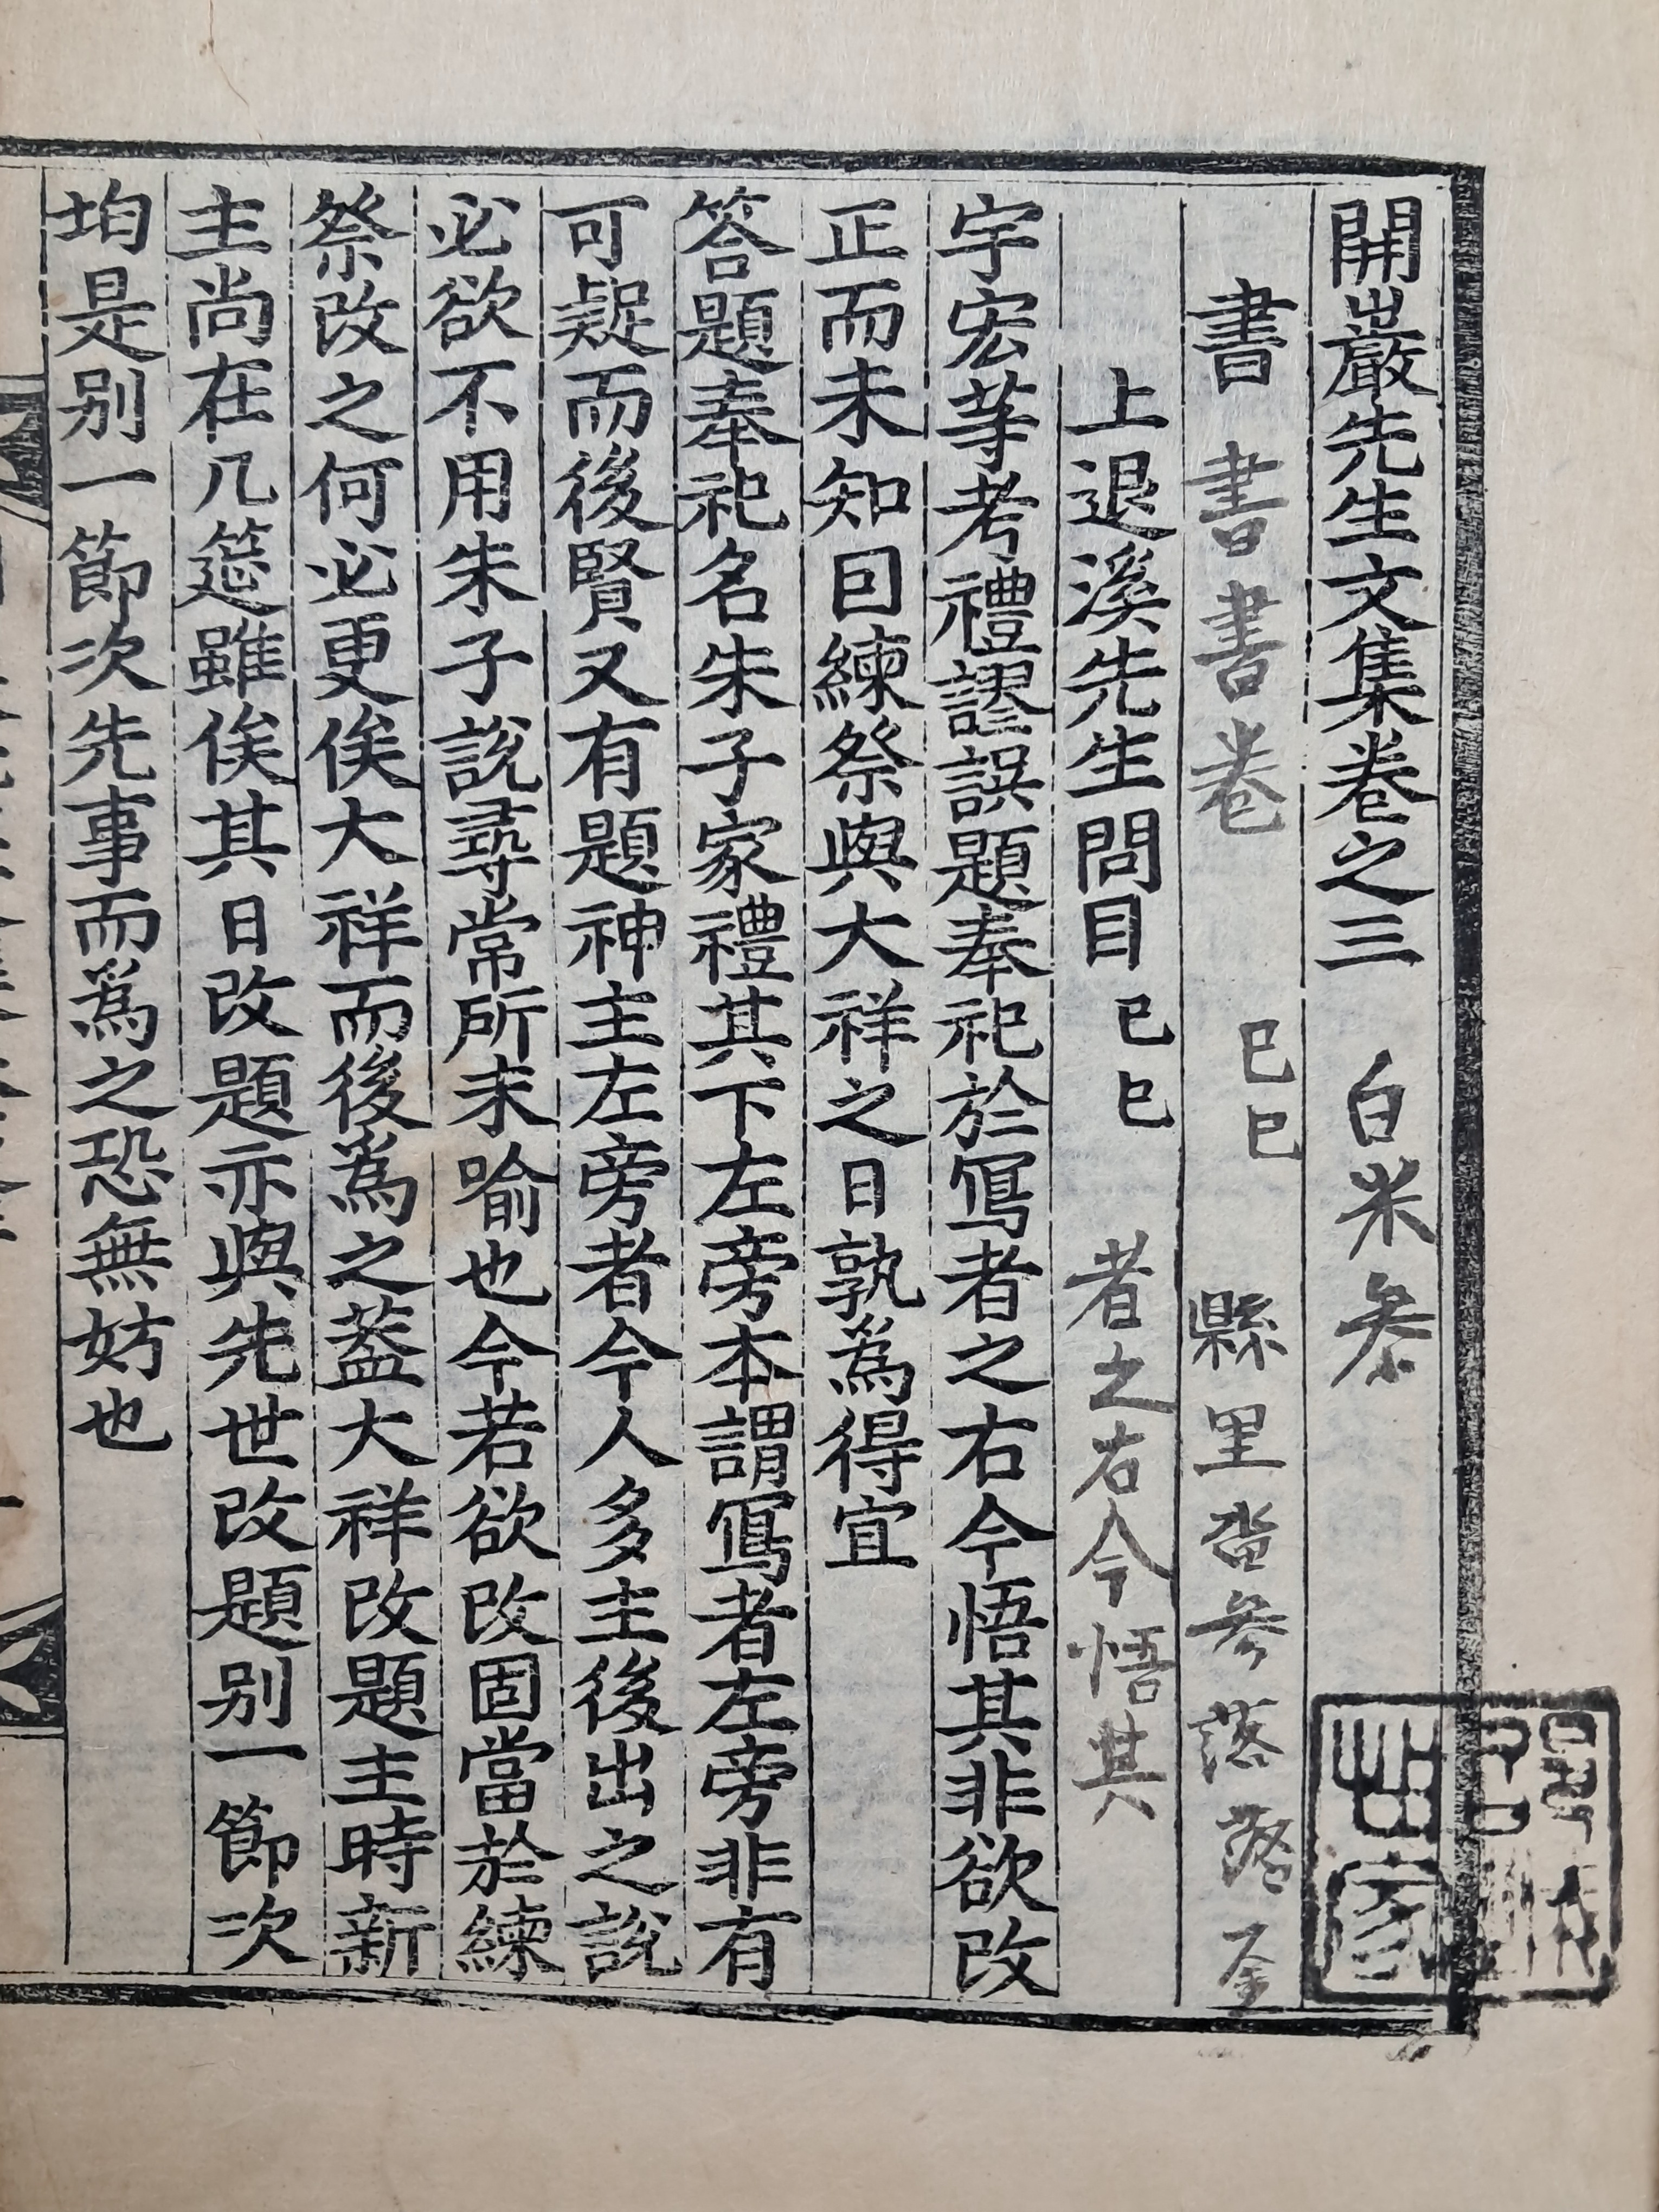 開巖先生文集卷之三 白米參
書書書卷 巳巳 縣里畓參落落
上退溪先生問目 巳巳 者之右今悟其
宇宏等考禮謬誤題奉祀於寫者之右今悟其非欲改
正而未知因練祭與大祥之日孰爲得宜
答題奉祀名朱子家禮其下左旁本謂寫者左旁非有
可疑而後賢又有題神主左旁者今人多主後出之說
必欲不用朱子說尋常所未喻也今若欲改固當於練
祭改之何必更俟大祥而後爲之蓋大祥改題主時新
主尚在几筵雖俟其日改題亦與先世改題别一節次
均是别一節次先事而爲之恐無妨也